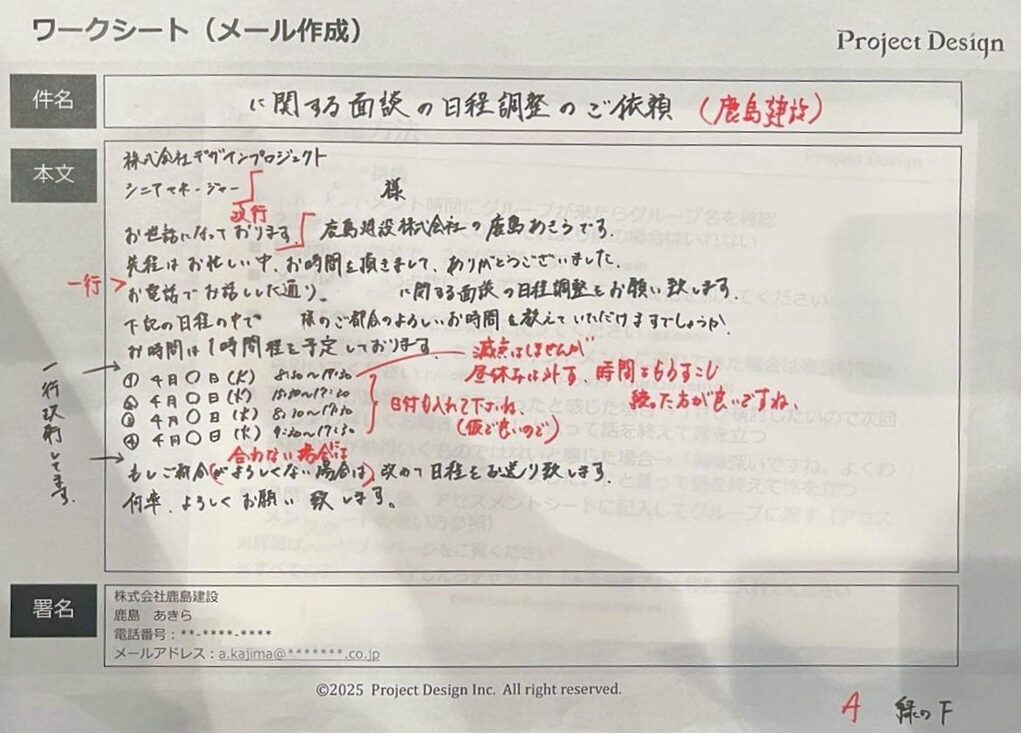 ワークシート（メール作成）
Project Design
件名
に関する面談の日程調整のご依頼 (鹿島建設)
本文
株式会社デザインプロジェクト
シニアマネージャー
様
改行
お世話になっております。鹿島建設株式会社の鹿島あきらです。
先程はお忙しい中、お時間を頂きまして、ありがとうございました。
一行
お電話でお話しした通り、 に関する面談の日程調整をお願い致します。
下記の日程の中で 様のご都合のよろしいお時間を教えていただけますでしょうか。
お時間は1時間程を予定しております。
減点はしませんが
昼休みは外す、時間をもう少し
絞った方が良いですね、
① 4月〇日(火) 8:30〜17:30
② 4月〇日(水) 10:30〜17:30
③ 4月〇日(木) 8:30〜17:30
④ 4月〇日(火) 9:30〜17:30
日付も入れて下さいね、
(仮で良いので)
一行改行してます。
合わない場合は
もしご都合(がよろしくない場合は)改めて日程をお送り致します。
何卒、よろしくお願い致します。
署名
株式会社鹿島建設
鹿島 あきら
電話番号：**-****-****
メールアドレス：a.kajima@*******.co.jp
©2025 Project Design Inc. All right reserved.
A 緑の下